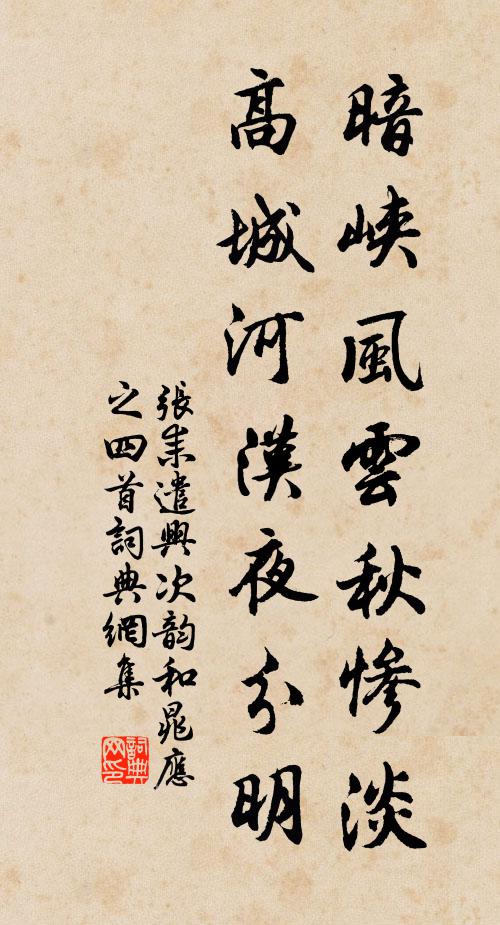 暗峽風雲秋慘淡
高城河漢夜分明
張耒遣興次韵和晁應
之四首詞典網集
詞典網印